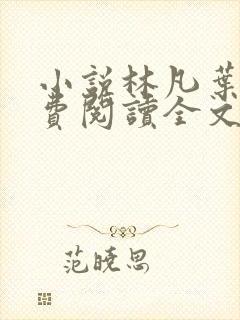 小説林凡葉
費閱讀全文
范曉思